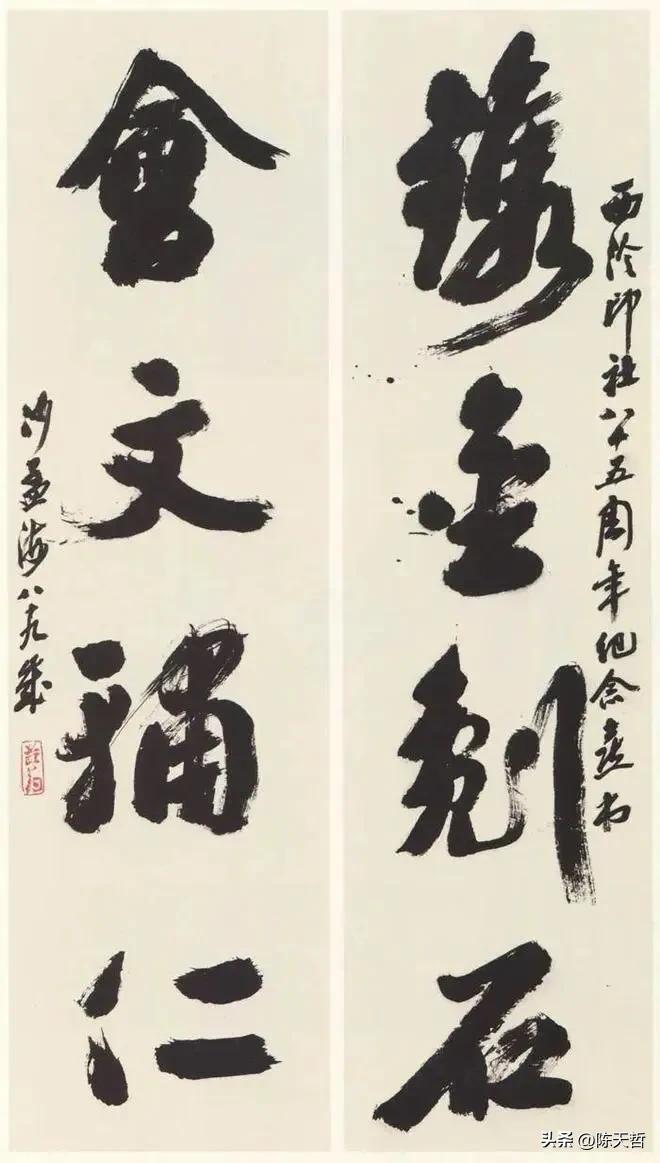 西泠印社八十五周年紀念書
金石
會文輔仁
沙孟海八十九歲
头条 @陈天哲